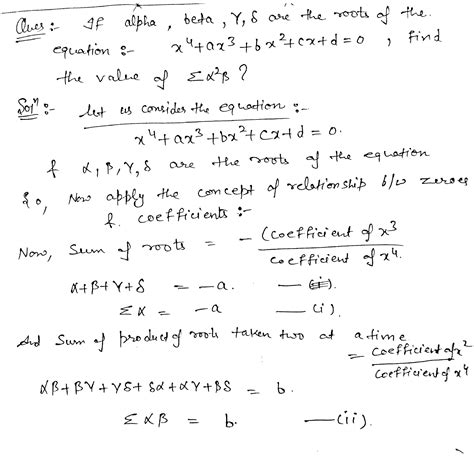 Ques :- If alpha, beta, γ, δ are the roots of the
equation :- x⁴+ax³+bx²+cx+d=0 , find
the value of Σα²β ?
Solⁿ :- let us consider the equation :-
x⁴+ax³+bx²+cx+d=0.
& α, β, γ, δ are the roots of the equation
So, Now apply the concept of relationship b/w zeroes
&. coefficients :-
Now, Sum of roots = - (coefficient of x³ / coefficient of x⁴.
α+β+γ+δ = -a.
Σα = -a —(i).
And Sum of product of roots taken two at a time
= coefficient of x² / coefficient of x⁴
αβ+βγ+γδ+δα+αγ+βδ = b.
Σαβ = b. —(ii).